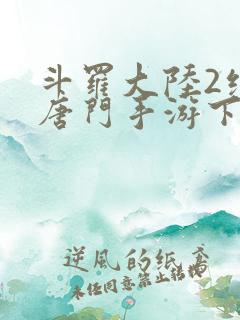 斗羅大陸2絕
唐門手游下
逆風的紙鳶
未经同意禁止转载